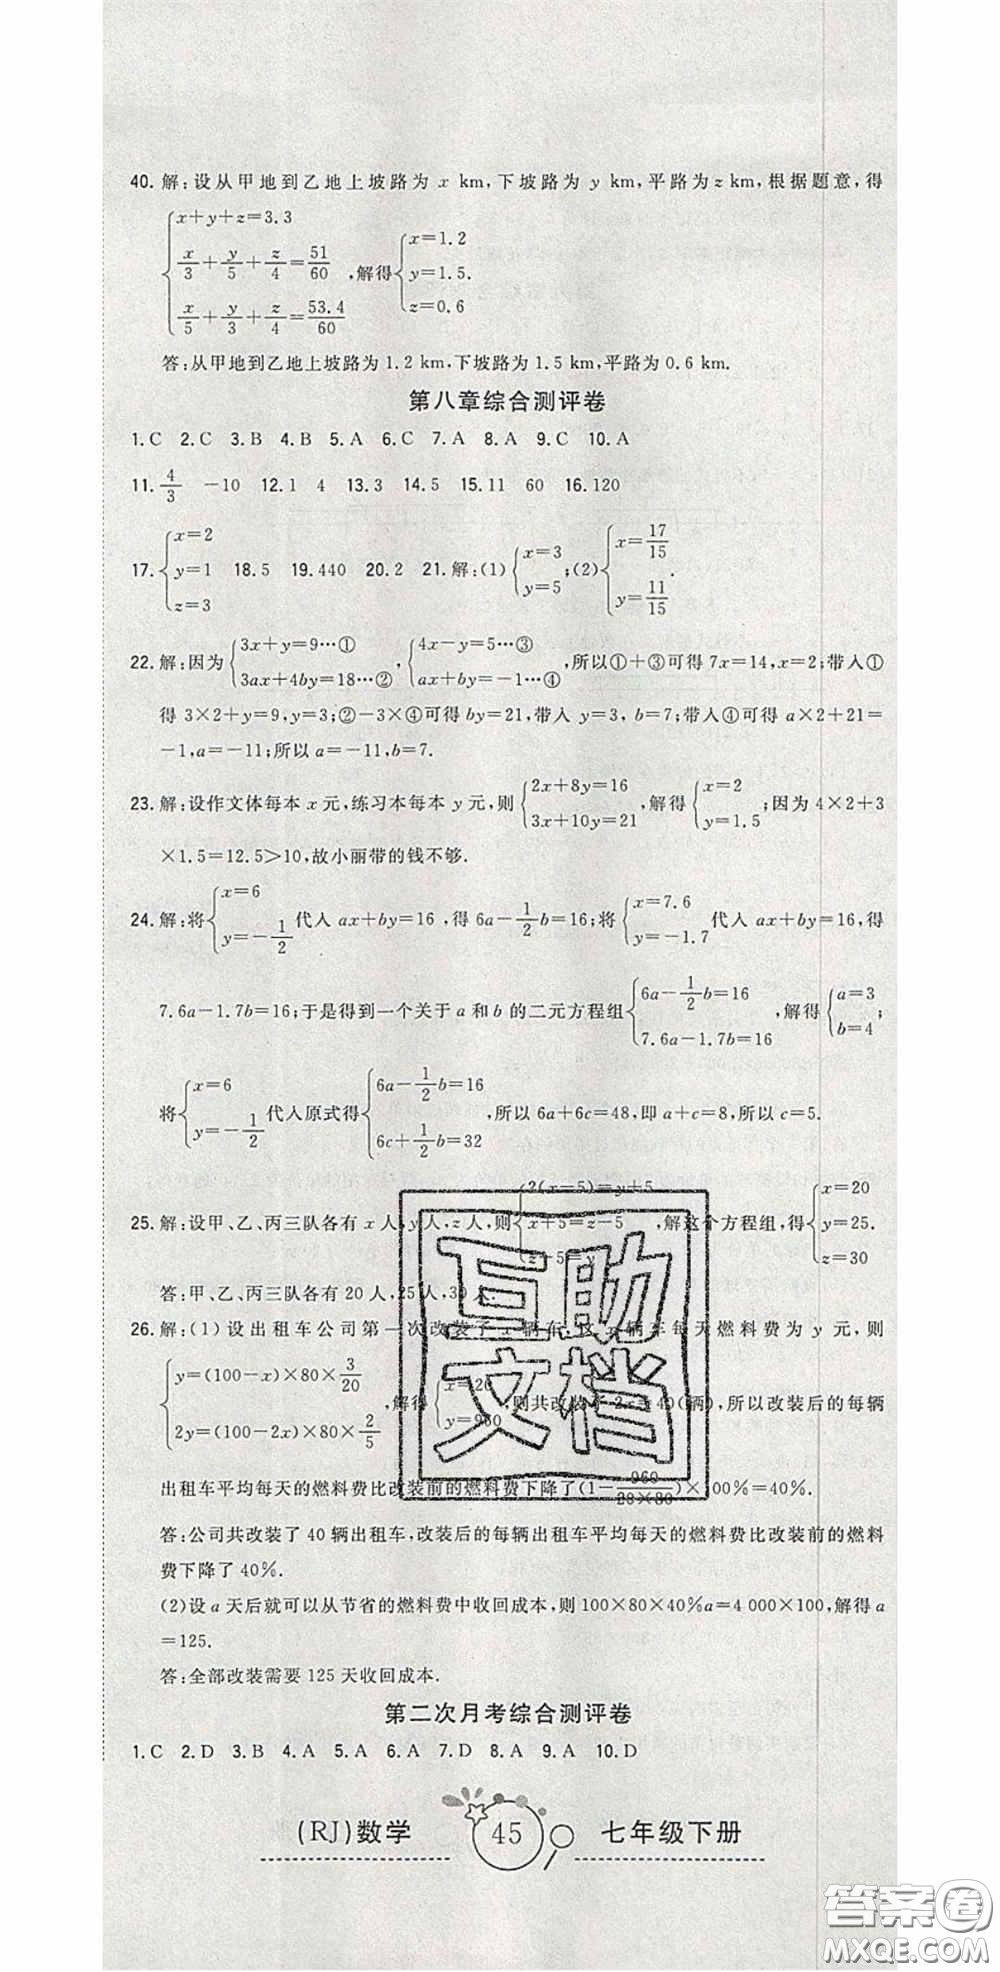 40. 解:设从甲地到乙地上坡路为 x km,下坡路为 y km,平路为 z km,根据题意,得
{x+y+z=3.3
x/3+y/5+z/4=51/60
x/5+y/3+z/4=53.4/60
,解得{x=1.2
y=1.5.
z=0.6
答:从甲地到乙地上坡路为 1.2 km,下坡路为 1.5 km,平路为 0.6 km.
第八章综合测评卷
1.C 2.C 3.B 4.B 5.A 6.C 7.A 8.A 9.C 10.A
11. 4/3 −10 12.1 4 13.3 14.5 15.11 60 16.120
17. {x=2 y=1 z=3 18.5 19.440 20.2 21.解:(1){x=3 y=5;(2){x=17/15 y=11/15.
22. 解:因为{3x+y=9…① 3ax+4by=18…②,{4x−y=5…③ ax+by=−1…④,所以①+③可得 7x=14,x=2;带人①
得 3×2+y=9,y=3;②−3×④可得 by=21,带人 y=3,b=7;带人④可得 a×2+21=
−1,a=−11;所以 a=−11,b=7.
23. 解:设作文体每本 x 元,练习本每本 y 元,则{2x+8y=16 3x+10y=21,解得{x=2 y=1.5;因为 4×2+3
×1.5=12.5>10,故小丽带的钱不够.
24. 解:将{x=6 y=−1/2 代人 ax+by=16,得 6a−1/2b=16;将{x=7.6 y=−1.7 代人 ax+by=16,得
7.6a−1.7b=16;于是得到一个关于 a 和 b 的二元方程组{6a−1/2b=16 7.6a−1.7b=16,解得{a=3 b=4;
将{x=6 y=−1/2 代人原式得{6a−1/2b=16 6c+1/2b=32,所以 6a+6c=48,即 a+c=8,所以 c=5.
25. 解:设甲、乙、丙三队各有 x 人,y 人,z 人,则{2(x−5)=y+5 x+5=z−5 z−5=y,解这个方程组,得{x=20 y=25. z=30
答:甲、乙、丙三队各有 20 人,25 人,30 人.
26. 解:(1)设出租车公司第一次改装了 x 辆车,这 辆车每天燃料费为 y 元,则
{y=(100−x)×80×3/20
2y=(100−2x)×80×2/5
,解得{x=20 y=960,则共改装了 2x=40(辆),所以改装后的每辆
出租车平均每天的燃料费比改装前的燃料费下降了(1−960/20×80)×100%=40%.
答:公司共改装了 40 辆出租车,改装后的每辆出租车平均每天的燃料费比改装前的燃料
费下降了 40%.
(2)设 a 天后就可以从节省的燃料费中收回成本,则 100×80×40%a=4 000×100,解得 a
=125.
答:全部改装需要 125 天收回成本.
第二次月考综合测评卷
1.C 2.D 3.B 4.A 5.A 6.A 7.D 8.A 9.A 10.D
(RJ)数学 45 七年级下册
互助
文档
答案卷
MXQE.COM